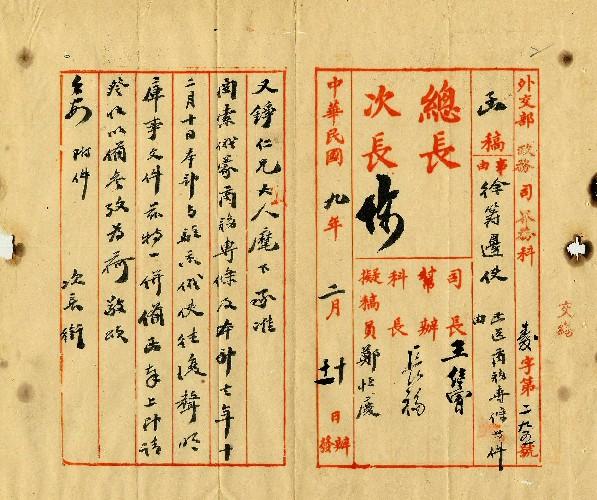 外交部 政務 司 界務 科
函稿 事由 徐籌邊使 函送商務專條等件由
字第二九五號
總長
次長
司長 王
幫辦
科長
擬稿員 鄭恆慶
中華民國 九年 二月 日 辦發
又錚仁兄大人麾下承准
函索俄蒙商務專條及本部七年十
二月十日本部与駐京俄使往復聲明
庫事文件茲特一併備函奉上即請
詧收以備參攷為荷敬頌
台安 附件 次長銜